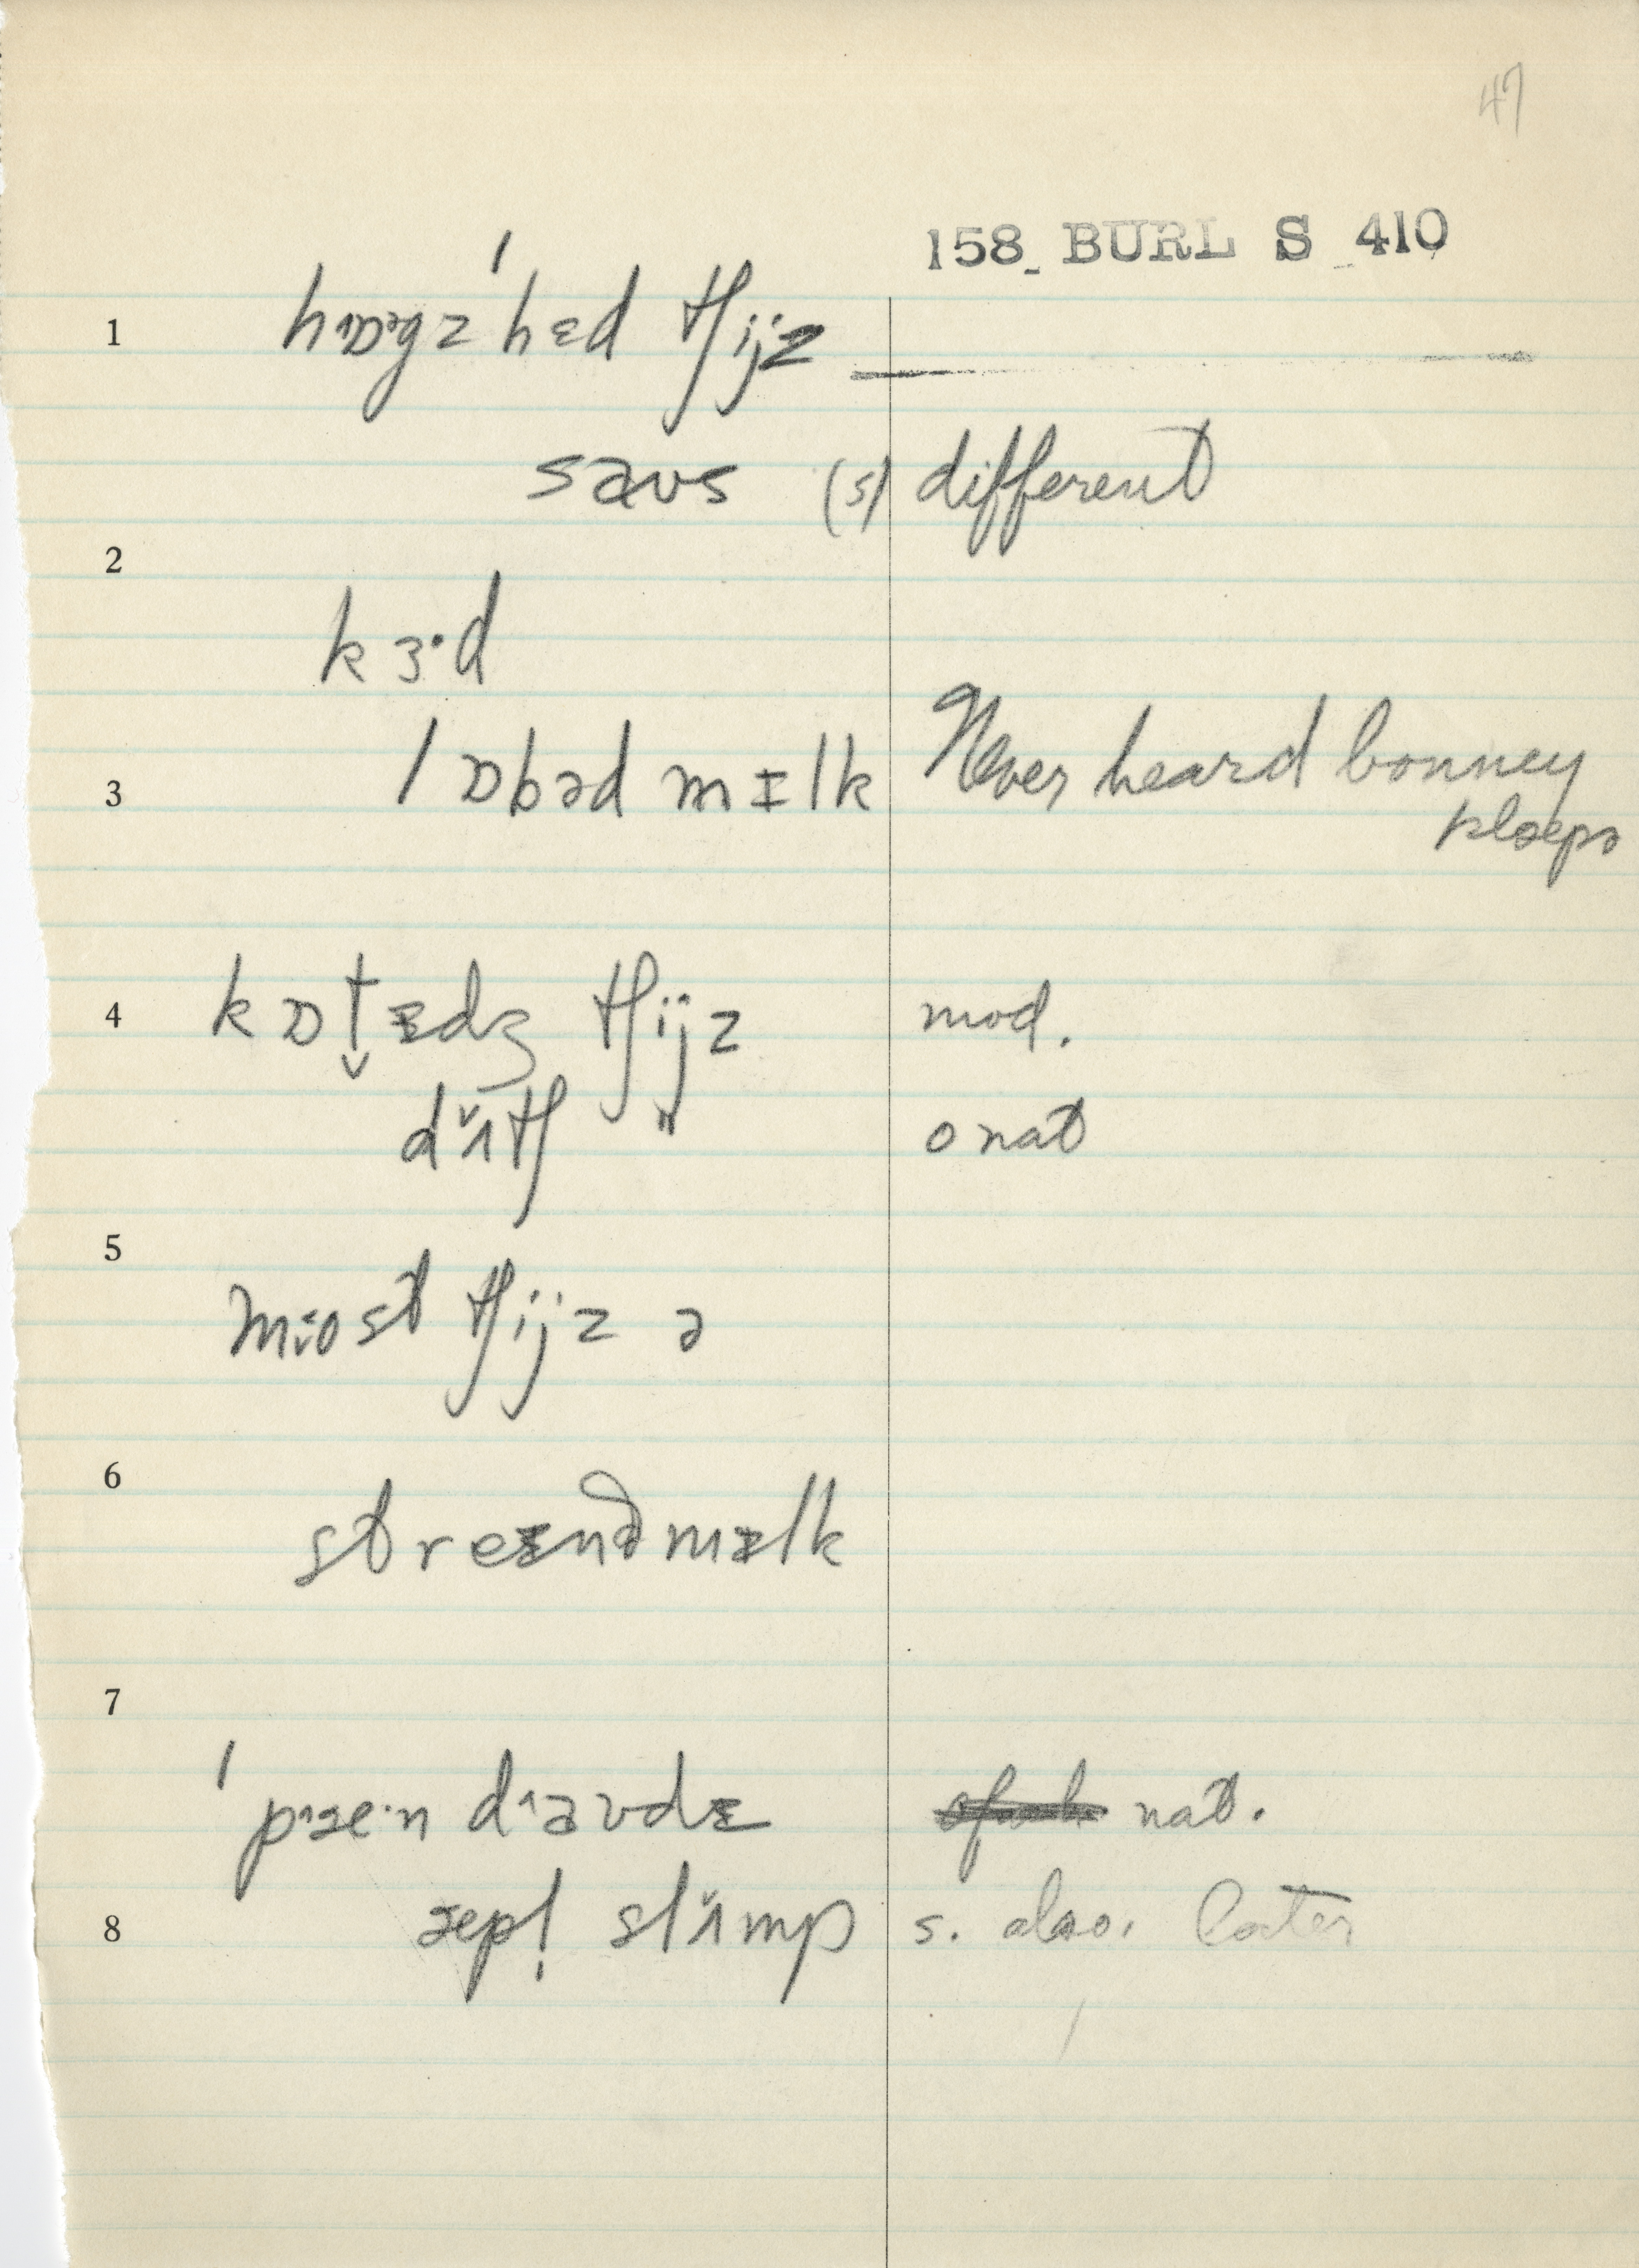 47
158 BURL S 410
1 hɒgz'hɛd tʃijz
saʊs (s) different
2
kɜ·d
3 lɒbəd mɪlk Never heard bonney
4 kɒt̬ɪdʒ tʃijz mod.
dʌ̌tʃ " o nat
5
most tʃijz ə
6
streɪnəmɪlk
7
dˈaʊdɪ nat.
8 æpl̩ slʌ̌mp s. also. later